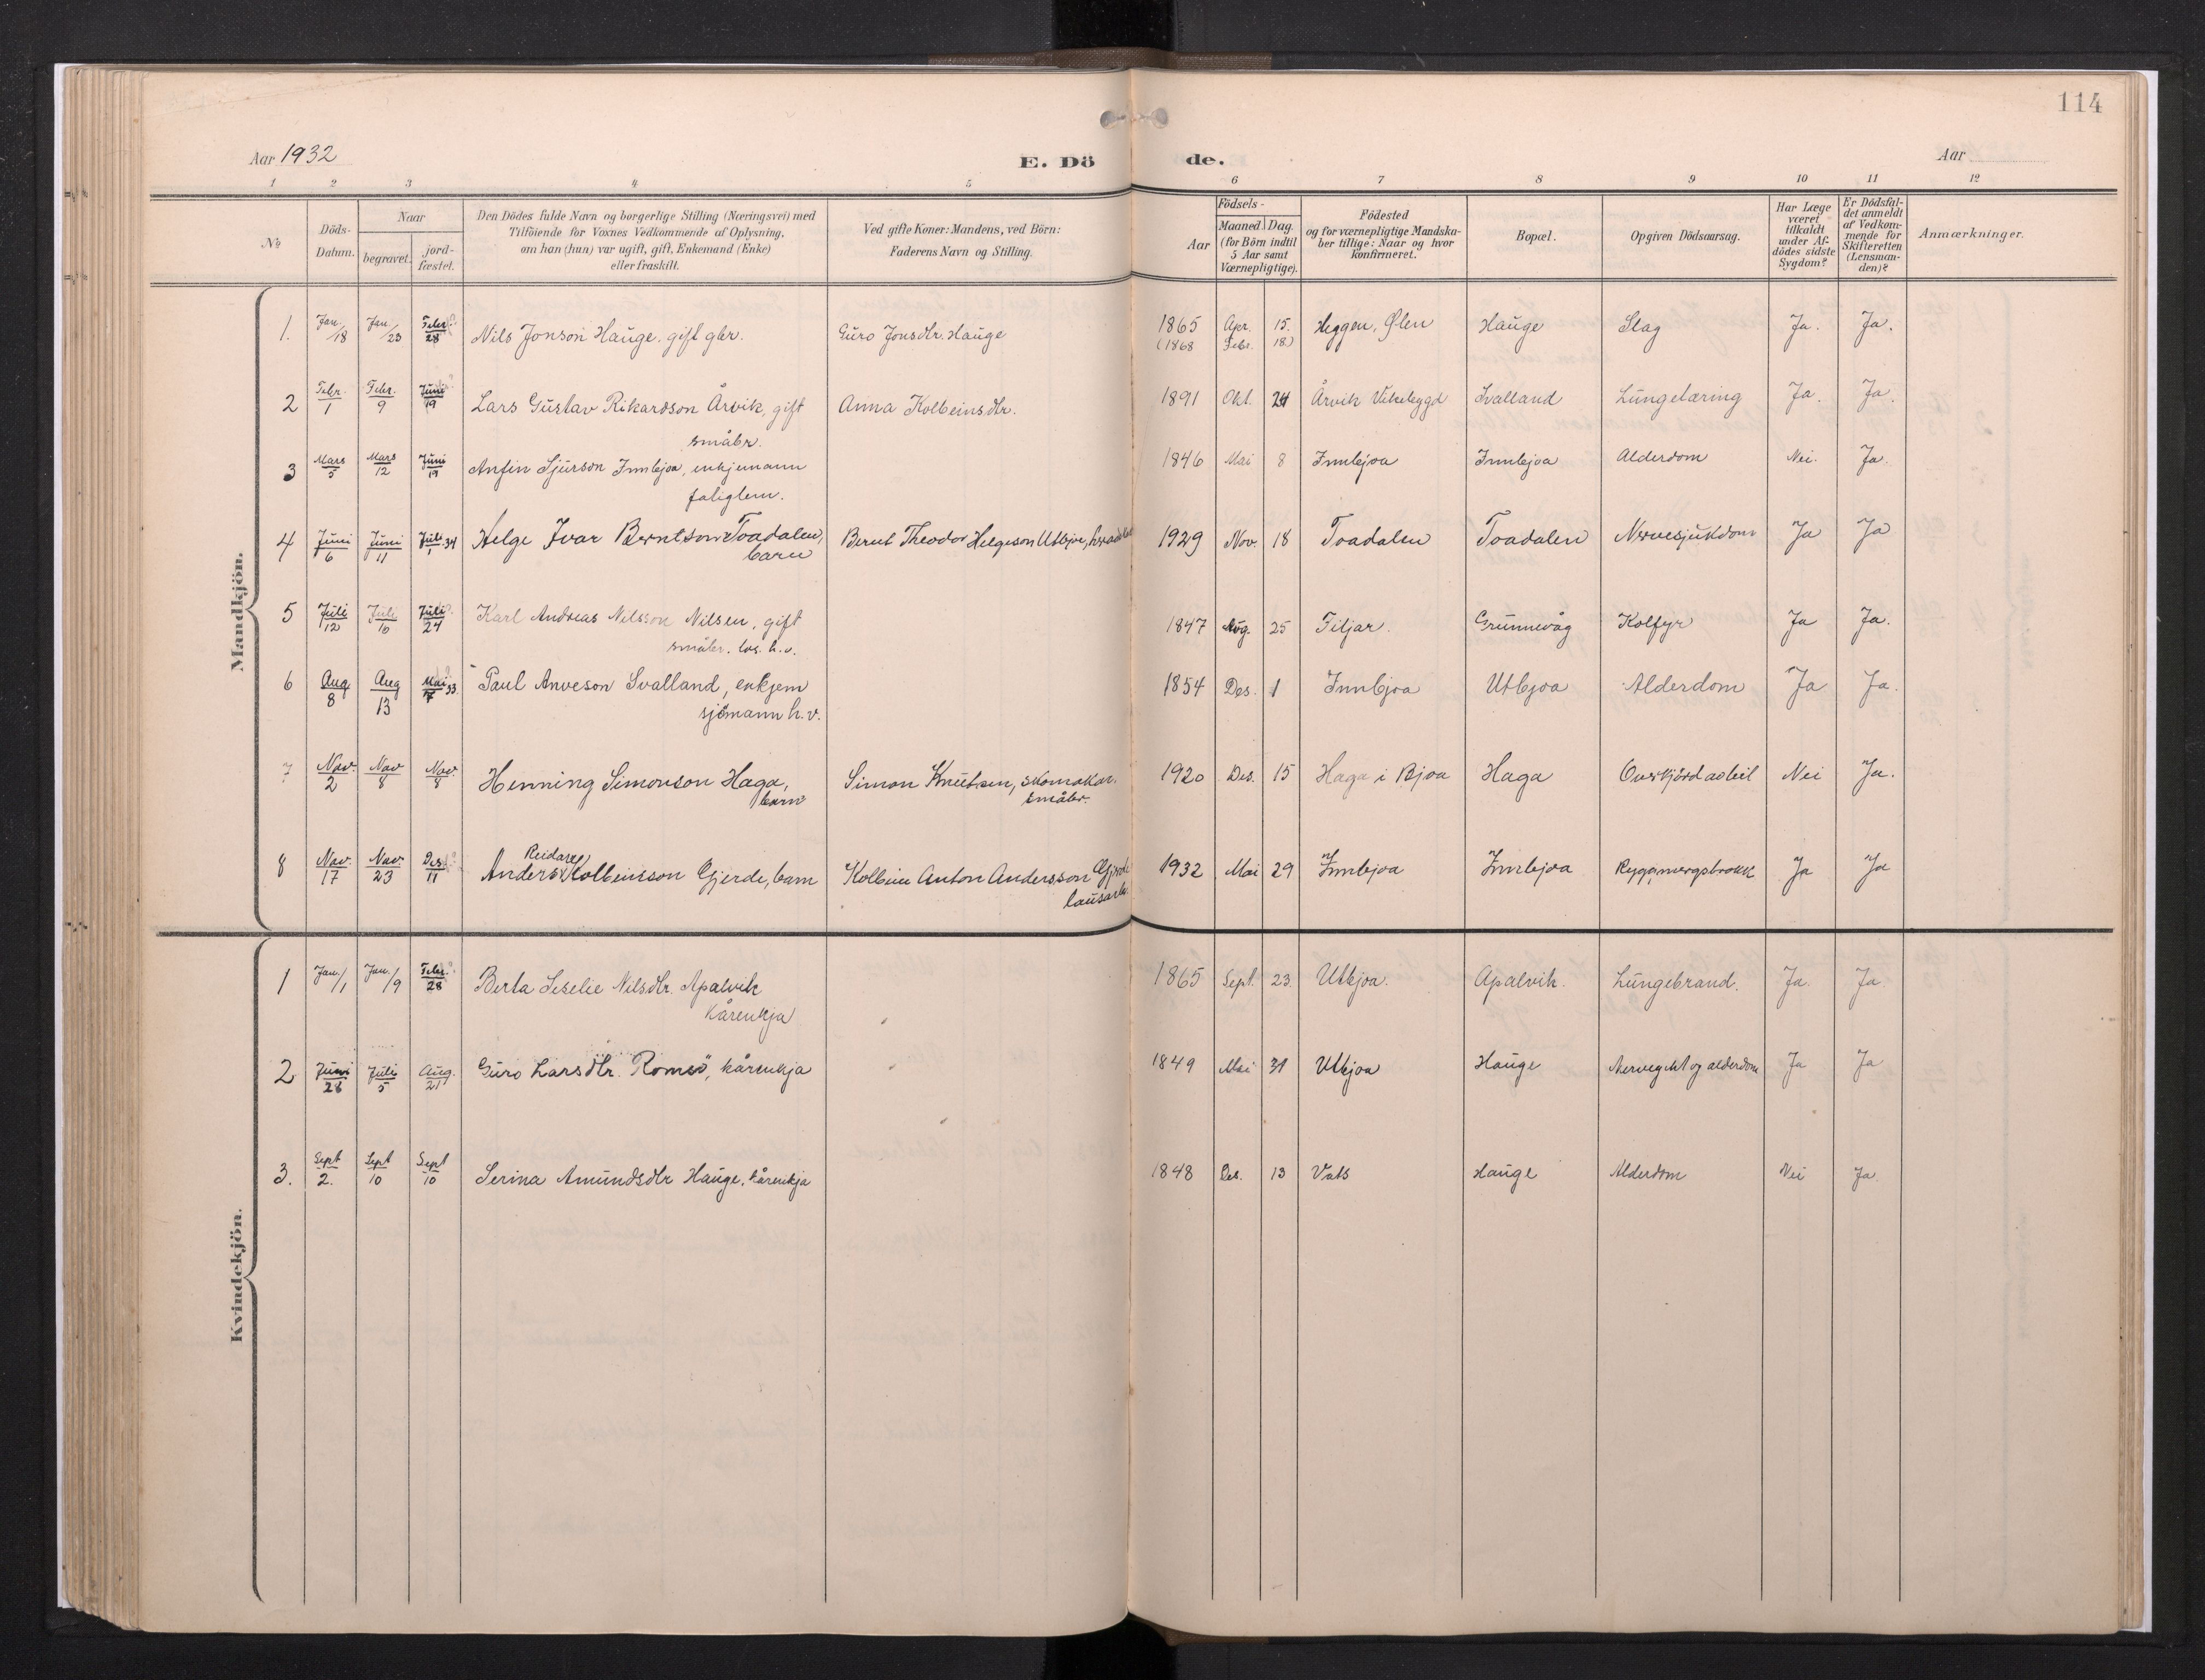 114
Aar 1932 E. Dö de. Aar
1 2 3 4 5 6 7 8 9 10 11 12
№
Döds-Datum.
Naar
begravet.
jord-fæstet.
Den Dödes fulde Navn og borgerlige Stilling (Næringsvei) med
Tilföiende for Voxnes Vedkommende af Oplysning,
om han (hun) var ugift, gift, Enkemand (Enke)
eller fraskilt.
Ved gifte Koner: Mandens, ved Börn:
Faderens Navn og Stilling.
Födsels-
Aar
Maaned Dag
(for Börn indtil
5 Aar samt
Værnepligtige).
Födested
og for værnepligtige Mandska-
ber tillige: Naar og hvor
konfirmeret.
Bopæl.
Opgiven Dödsaarsag.
Har Læge
været
tilkaldt
under Af-
dödes sidste
Sygdom?
Er Dödsfal-
det anmeldt
af Vedkom-
mende for
Skifteretten
(Lensman-
den)?
Anmærkninger.
Mandkjön.
1. Jan/18 Jan/23 Febr./28 Nils Jonson Hauge. gift gbr. Guro Jonsdtr. Hauge 1865 Apr. 15. Heggen, Ølen Hauge Slag Ja. Ja.
(1868 Febr. 18.)
2 Febr./1 Febr./9 Juni/19 Lars Gustav Rikardson Årvik, gift Anna Kolbeinsdtr. 1891 Okt. 24 Årvik Vikebygd Svalland Lungetæring Ja. Ja.
småbr.
3 Mars/5 Mars/12 Juni/19 Anfin Sjurson Innbjoa, enkjemann 1846 Mai 8 Innbjoa Innbjoa Alderdom Nei. Ja.
4 Juni/6 Juni/11 Juli/1 34 Helge Ivar Berntson Toadalen, Bernt Theodor Helgeson Utbjoa, 1929 Nov. 18 Toadalen Toadalen Nervesjukdom Ja Ja
barn
5 Juli/12 Juli/16 Juli/24 Karl Andreas Nilsson Nilsen, gift 1847 Aug. 25 Tiljar. Grunnevåg Kolfyr Ja Ja.
småbr. los. h.v.
6 Aug/8 Aug/13 Mai/7 33 Paul Anveson Svalland, enkjem 1854 Des. 1 Innbjoa Utbjoa Alderdom Ja Ja.
sjømann h.v.
7 Nov./2 Nov/8 Nov./8 Henning Simonson Haga, Simon Knutsen, skomakar. 1920 Des. 15 Haga i Bjoa Haga Overkjørd av bil Nei Ja.
barn småbr.
Reidar
8 Nov./17 Nov./23 Des/11 Anders Kolbeinsson Gjerde, barn Kolbein Anton Andersson Gjerde 1932 Mai 29 Innbjoa Innbjoa Ryggmergsbrokk Ja Ja
Kvindekjön.
1 Jan./1 Jan./9 Febr./28 Berta Seselie Nilsdtr. Apalvik 1865 Sept. 23. Utbjoa. Apalvik. Lungebrand. Ja. Ja
kårenkja
2 Juni/28 Juli/5 Aug./21 Guro Larsdtr. Romsö, kårenkja 1849 Mai 31 Utbjoa Hauge Nervegikt og alderdom Ja Ja
3. Sept/2. Sept/10 Sept/10 Serina Amundsdtr Hauge. kårenkja 1848 Des. 13 Vats Hauge Alderdom Nei Ja